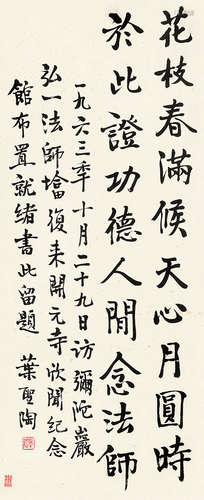 花枝春滿候天心月圓時
於此證功德人閒念法師
一九六三年十月二十九日訪彌陀巖
弘一法師塔復来開元寺欣聞紀念
館布置就緒書此留題 葉聖陶